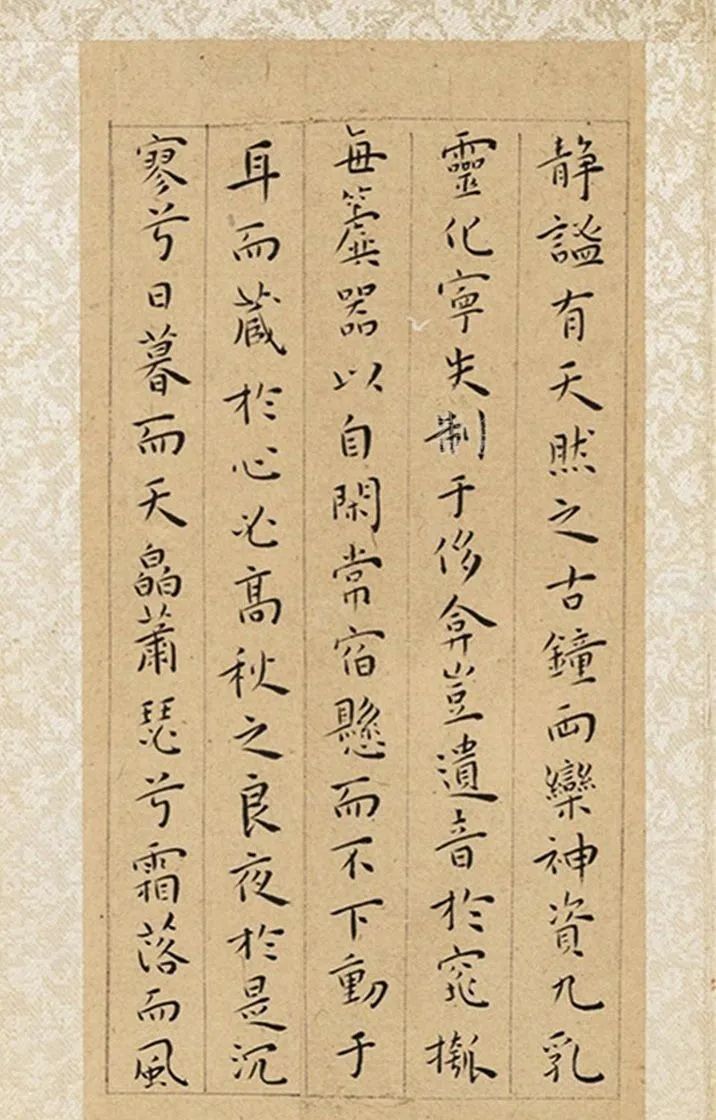 静謐有天然之古鐘兩欒神資九乳
靈化寧失制于侈弇豈遺音於窕摦
每簴器以自閑常宿懸而不下動于
耳而蔵於心必高秋之良夜於是沉
寥兮日暮而天皛蕭瑟兮霜落而風